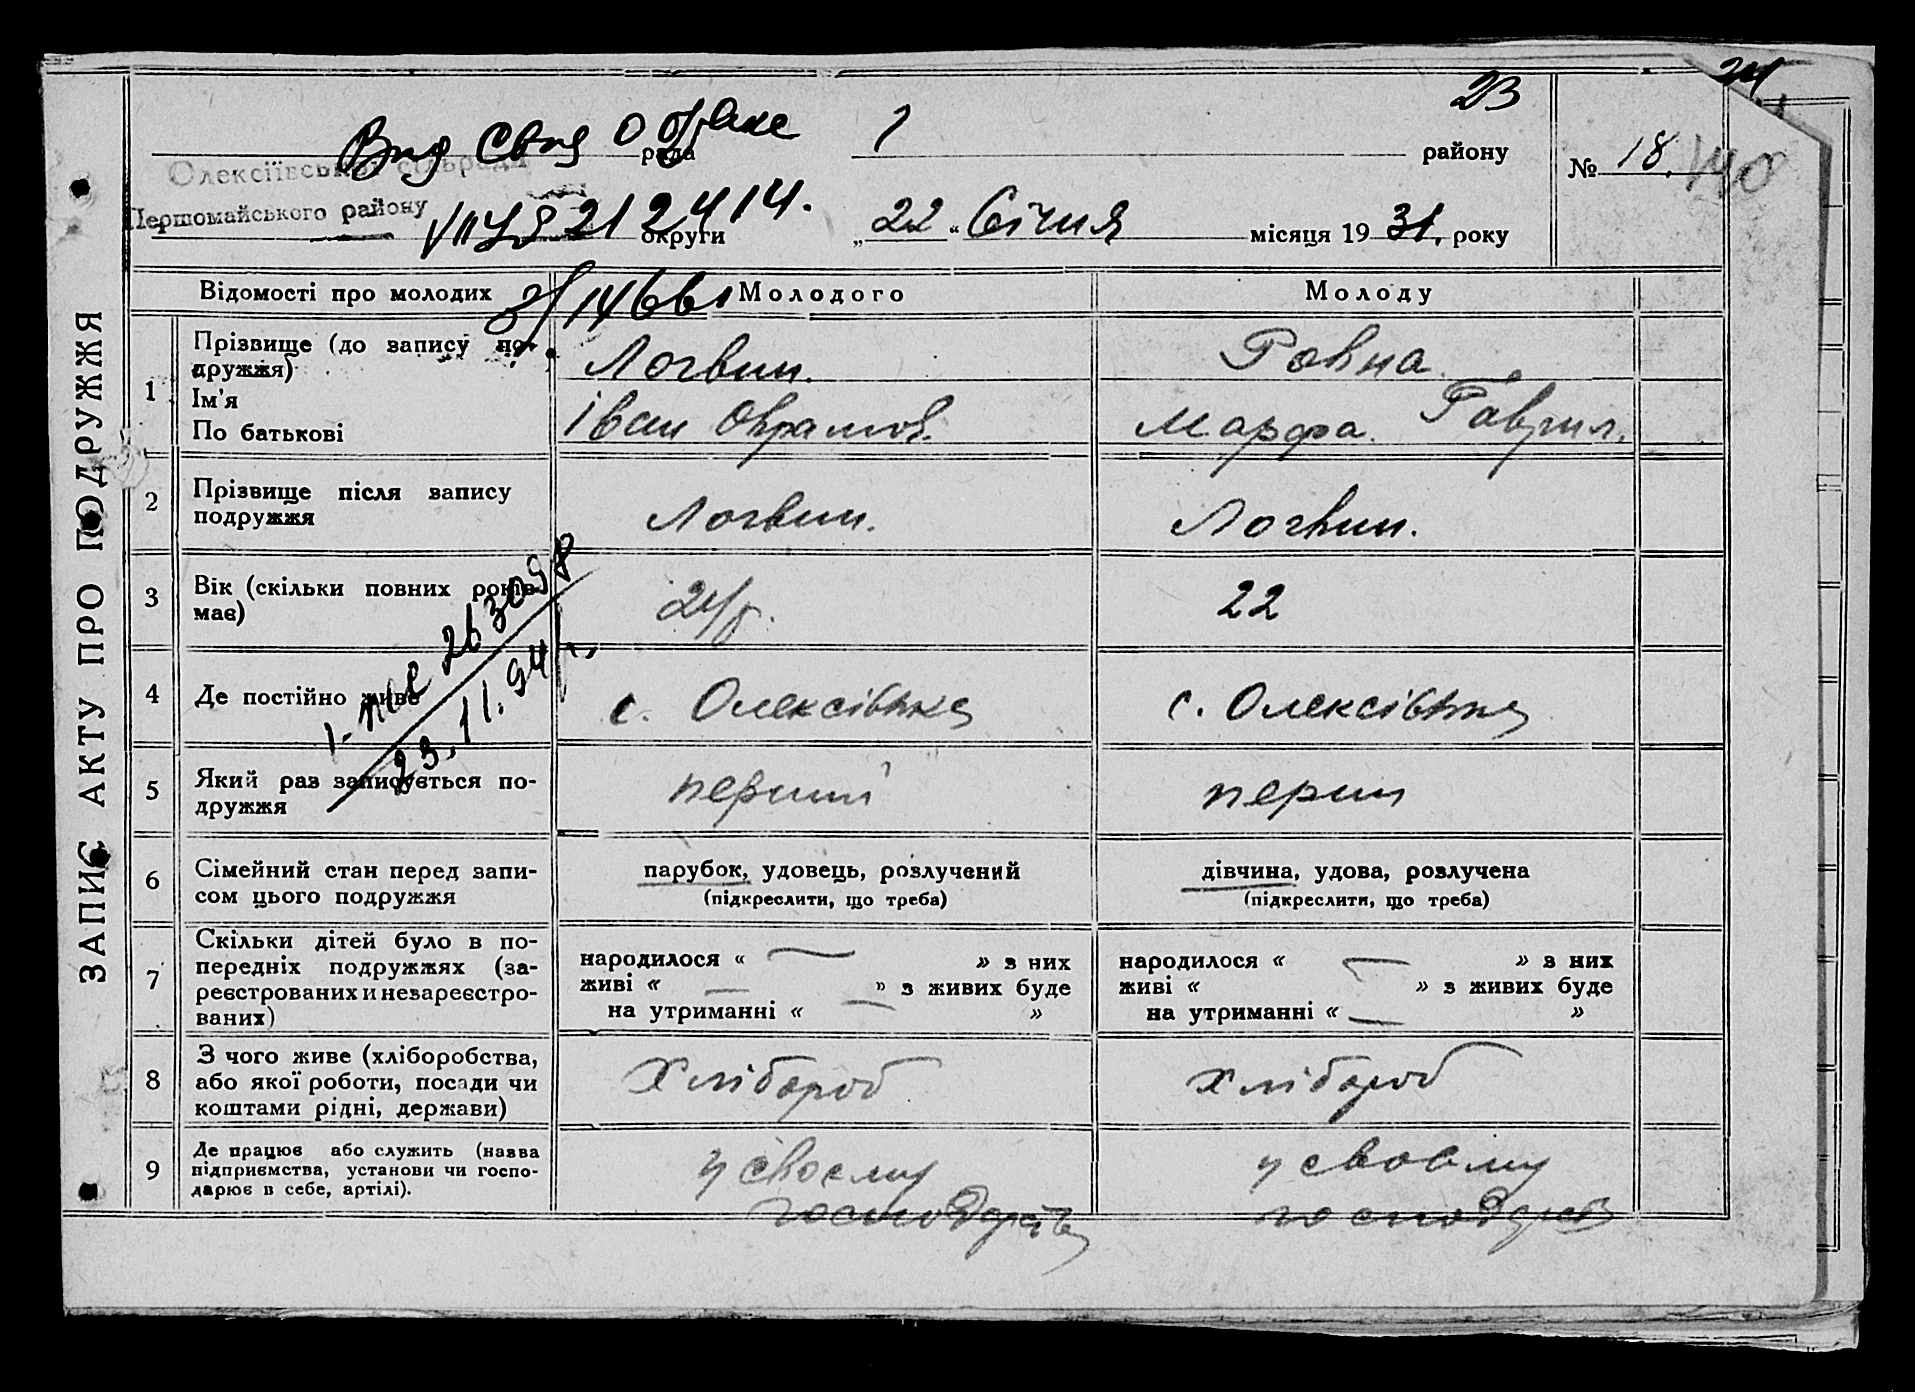 23
24
Вид Свид О браке
рада
району
№ 18.
140
Олексіївська сільрада
Першомайського району
212414.
округи
„ 22 “ Січня місяця 19 31. року
ЗАПИС АКТУ ПРО ПОДРУЖЖЯ
Відомості про молодих
Молодого
Молоду
1
Прізвище (до запису по-
дружжя)
Ім'я
По батькові
Логвин.
Іван Оврамов.
Ровна
Марфа. Гаврил.
2
Прізвище після запису
подружжя
Логвин.
Логвин.
3
Вік (скільки повних років
має)
24 р.
22
263098
23.11.94 г.
4
Де постійно живе
с. Олексівка
с. Олексівка
5
Який раз записується по-
дружжя
перший
перши
6
Сімейний стан перед запи-
сом цього подружжя
парубок, удовець, розлучений
(підкреслити, що треба)
дівчина, удова, розлучена
(підкреслити, що треба)
7
Скільки дітей було в по-
передніх подружжях (за-
реєстрованих и незареєстро-
ваних)
народилося « — » з них
живі « — » з живих буде
на утриманні « — »
народилося « — » з них
живі « » з живих буде
на утриманні « — »
8
З чого живе (хліборобства,
або якої роботи, посади чи
коштами рідні, держави)
Хлібороб
Хлібороб
9
Де працює або служить (назва
підприємства, установи чи госпо-
дарює в себе, артілі).
у своєму
господарстві
у своєму
господарств